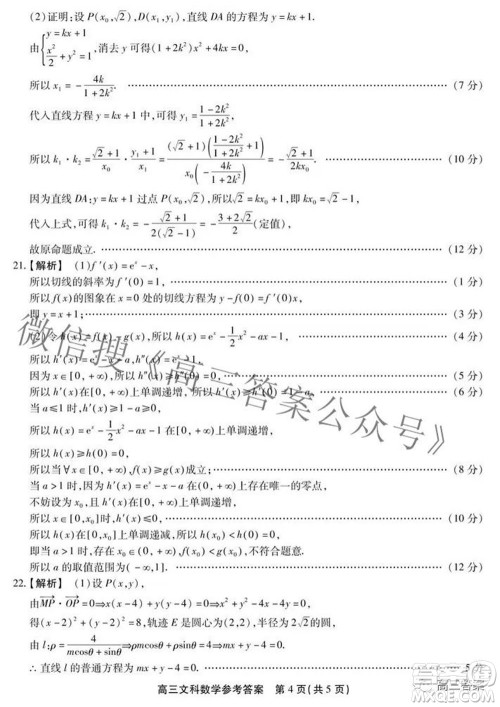 (2)证明:设 P(x₀,√2),D(x₁,y₁),直线 DA 的方程为 y=kx+1.
由{y=kx+1, x²/2+y²=1, 消去 y 可得(1+2k²)x²+4kx=0,
所以 x₁=-4k/(1+2k²). (7 分)
代入直线方程 y=kx+1 中,可得 y₁=(1-2k²)/(1+2k²).
所以 k₁·k₂=(√2+1)/x₀·(y₁+1)/x₁=(√2+1)((1-2k²)/(1+2k²)+1)/(x₀(-4k/(1+2k²)))=-(√2+1)/(2kx₀). (10 分)
因为直线 DA:y=kx+1 过点 P(x₀,√2),所以√2=kx₀+1,即 kx₀=√2-1,
代入上式,可得 k₁·k₂=-(√2+1)/(2(√2-1))=-(3+2√2)/2(定值),
故原命题成立. (12 分)
21.【解析】(1)f′(x)=eˣ-x,
所以切线的斜率为 f′(0)=1, (1 分)
所以 f(x)的图象在 x=0 处的切线方程为 y-f(0)=f′(0)x,
即 y=x+1; (3 分)
(2)令 h(x)=f(x)-g(x),所以 h(x)=eˣ-1/2x²-ax-1, (4 分)
所以 h′(x)=eˣ-x-a,h″(x)=eˣ-1.
因为 x∈[0,+∞),所以 h″(x)≥0. (5 分)
所以 h′(x)在[0,+∞)上单调递增,所以 h′(x)≥h′(0)=1-a. (6 分)
当 a≤1 时,h′(x)≥1-a≥0,
所以 h(x)=eˣ-1/2x²-ax-1 在[0,+∞)上单调递增,
所以 h(x)≥h(0)=0,
所以当∀x∈[0,+∞),f(x)≥g(x)成立; (8 分)
当 a>1 时,因为 h′(x)在[0,+∞)上单调递增,且 h′(0)=1-a<0,
不妨设为 x₀,所以 h′(x₀)=0.
所以 x∈[0,x₀]时,h′(x)≤0. (10 分)
所以 h(x)在[0,x₀]上单调递减,所以 h(x)≤h(0)=0,
即当 a>1 时,x∈[0,+∞),f(x)≥g(x)不恒成立,不符合题意.
所以 a 的取值范围为(-∞,1]. (12 分)
22.【解析】(1)设 P(x,y),
由MP·OP=0⇒x(x-4)+y(y-4)=0,
得(x-2)²+(y-2)²=8,轨迹 E 是圆心为(2,2),半径为 2√2的圆.
由 l:ρ=4/(mcosθ+sinθ)⇒mρcosθ+ρsinθ=4⇒mx+y-4=0.
∴ 直线 l 的普通方程为 mx+y-4=0. 5 分
高三文科数学参考答案 第 4 页(共 5 页)
微信搜《高三答案公众号》
高三答案